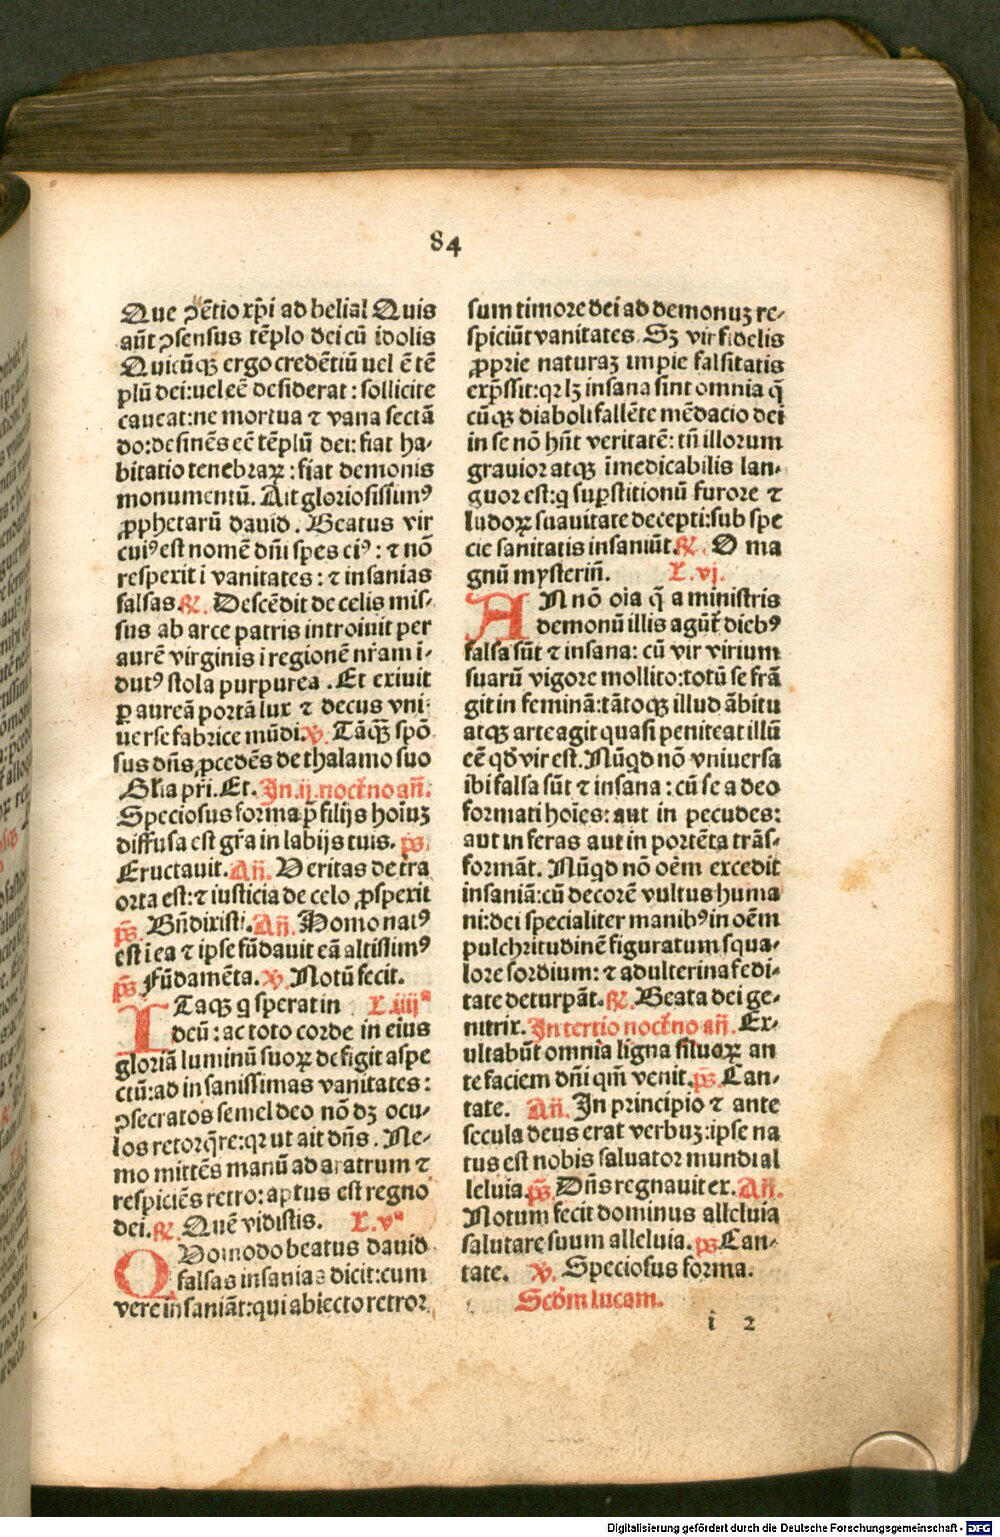 84
Que ꝯuētio xp̄i ad belial Quis
aūt ꝯsensus tēplo dei cū idolis
Quicūqꝫ ergo credētiū uel ē tē
plū dei: uel eē desiderat: sollicite
caueat: ne mortua ⁊ vana sectā
do: desinēs eē tēplū dei: fiat ha-
bitatio tenebraꝝ: fiat demonis
monumentū. Ait gloriosissimꝰ
ꝓphetarū dauid. Beatus vir
cuiꝰ est nomē dn̄i spes eiꝰ: ⁊ nō
respexit i vanitates: ⁊ insanias
falsas. ℟. Descēdit de celis mis-
sus ab arce patris introiuit per
aurē virginis i regionē nr̄am i-
dutꝰ stola purpurea. Et exiuit
ꝑ aureā portā lux ⁊ decus vni-
uerse fabrice mūdi. ℣. Tāqꝫ spō
sus dn̄s ꝓcedēs de thalamo suo
Gl'ia pr̄i. Et. In .ij. nocť no añ.
Speciosus forma p̄ filijs hoīuꝫ
diffusa est gr̄a in labijs tuis. p̄s.
Eructauit. Añ. Veritas de tra
orta est: ⁊ iusticia de celo ꝓspexit
p̄s. Bn̄dixisti. Añ. Homo natꝰ
est i ea ⁊ ipse fūdauit eā altissimꝰ
p̄s. Fūdamēta. ℣. Notū fecit.
ITaqꝫ q sperat in L. iiijᵃ
deū: ac toto corde in eius
gloriā luminū suoꝝ defigit aspe
ctū: ad insanissimas vanitates:
ꝯsecratos semel deo nō dꝫ ocu-
los retorq̄re: qꝛ ut ait dn̄s. Ne-
mo mittēs manū ad aratrum ⁊
respiciēs retro: aptus est regno
dei. ℟. Quē vidistis. L. vᵃ
QVomodo beatus dauid
falsas insanias dicit: cum
vere insaniāt: qui abiecto retror
sum timore dei ad demonuꝫ re-
spiciūt vanitates. Sꝫ vir fidelis
ꝓprie naturaꝫ impie falsitatis
exp̄ssit: qꝛ lꝫ insana sint omnia q̄
cūqꝫ diaboli fallēte mēdacio dei
in se nō hn̄t veritatē: tn̄ illorum
grauior atqꝫ īmedicabilis lan-
guor est: q suꝑstitionū furore ⁊
ludoꝝ suauitate decepti: sub spe
cie sanitatis insaniūt. ℟. O ma
gnū mysteriū. L. vj.
AN nō oīa q̄ a ministris
demonū illis agūt diebꝰ
falsa sūt ⁊ insana: cū vir virium
suarū vigore mollito: totū se frā
git in feminā: tātoqꝫ illud ābitu
atqꝫ arte agit quasi peniteat illū
eē qd' vir est. Nūqd nō vniuersa
ibi falsa sūt ⁊ insana: cū se a deo
formati hoīes: aut in pecudes:
aut in feras aut in portēta trās-
formāt. Nūqd nō oēm excedit
insaniā: cū decorē vultus huma
ni: dei specialiter manibꝰ in oēm
pulchritudinē figuratum squa-
lore sordium: ⁊ adulterina fedi-
tate deturpāt. ℟. Beata dei ge-
nitrix. In tertio nocť no añ. Ex-
ultabūt omnia ligna siluaꝝ an
te faciem dn̄i qm̄ venit. p̄s. Can-
tate. Añ. In principio ⁊ ante
secula deus erat verbuꝫ: ipse na
tus est nobis saluator mundi al
leluia. p̄s. Dn̄s regnauit ex. Añ.
Notum fecit dominus alleluia
salutare suum alleluia. ps. Can-
tate. ℣. Speciosus forma.
Scd'm lucam.
i 2
Digitalisierung gefördert durch die Deutsche Forschungsgemeinschaft - DFG